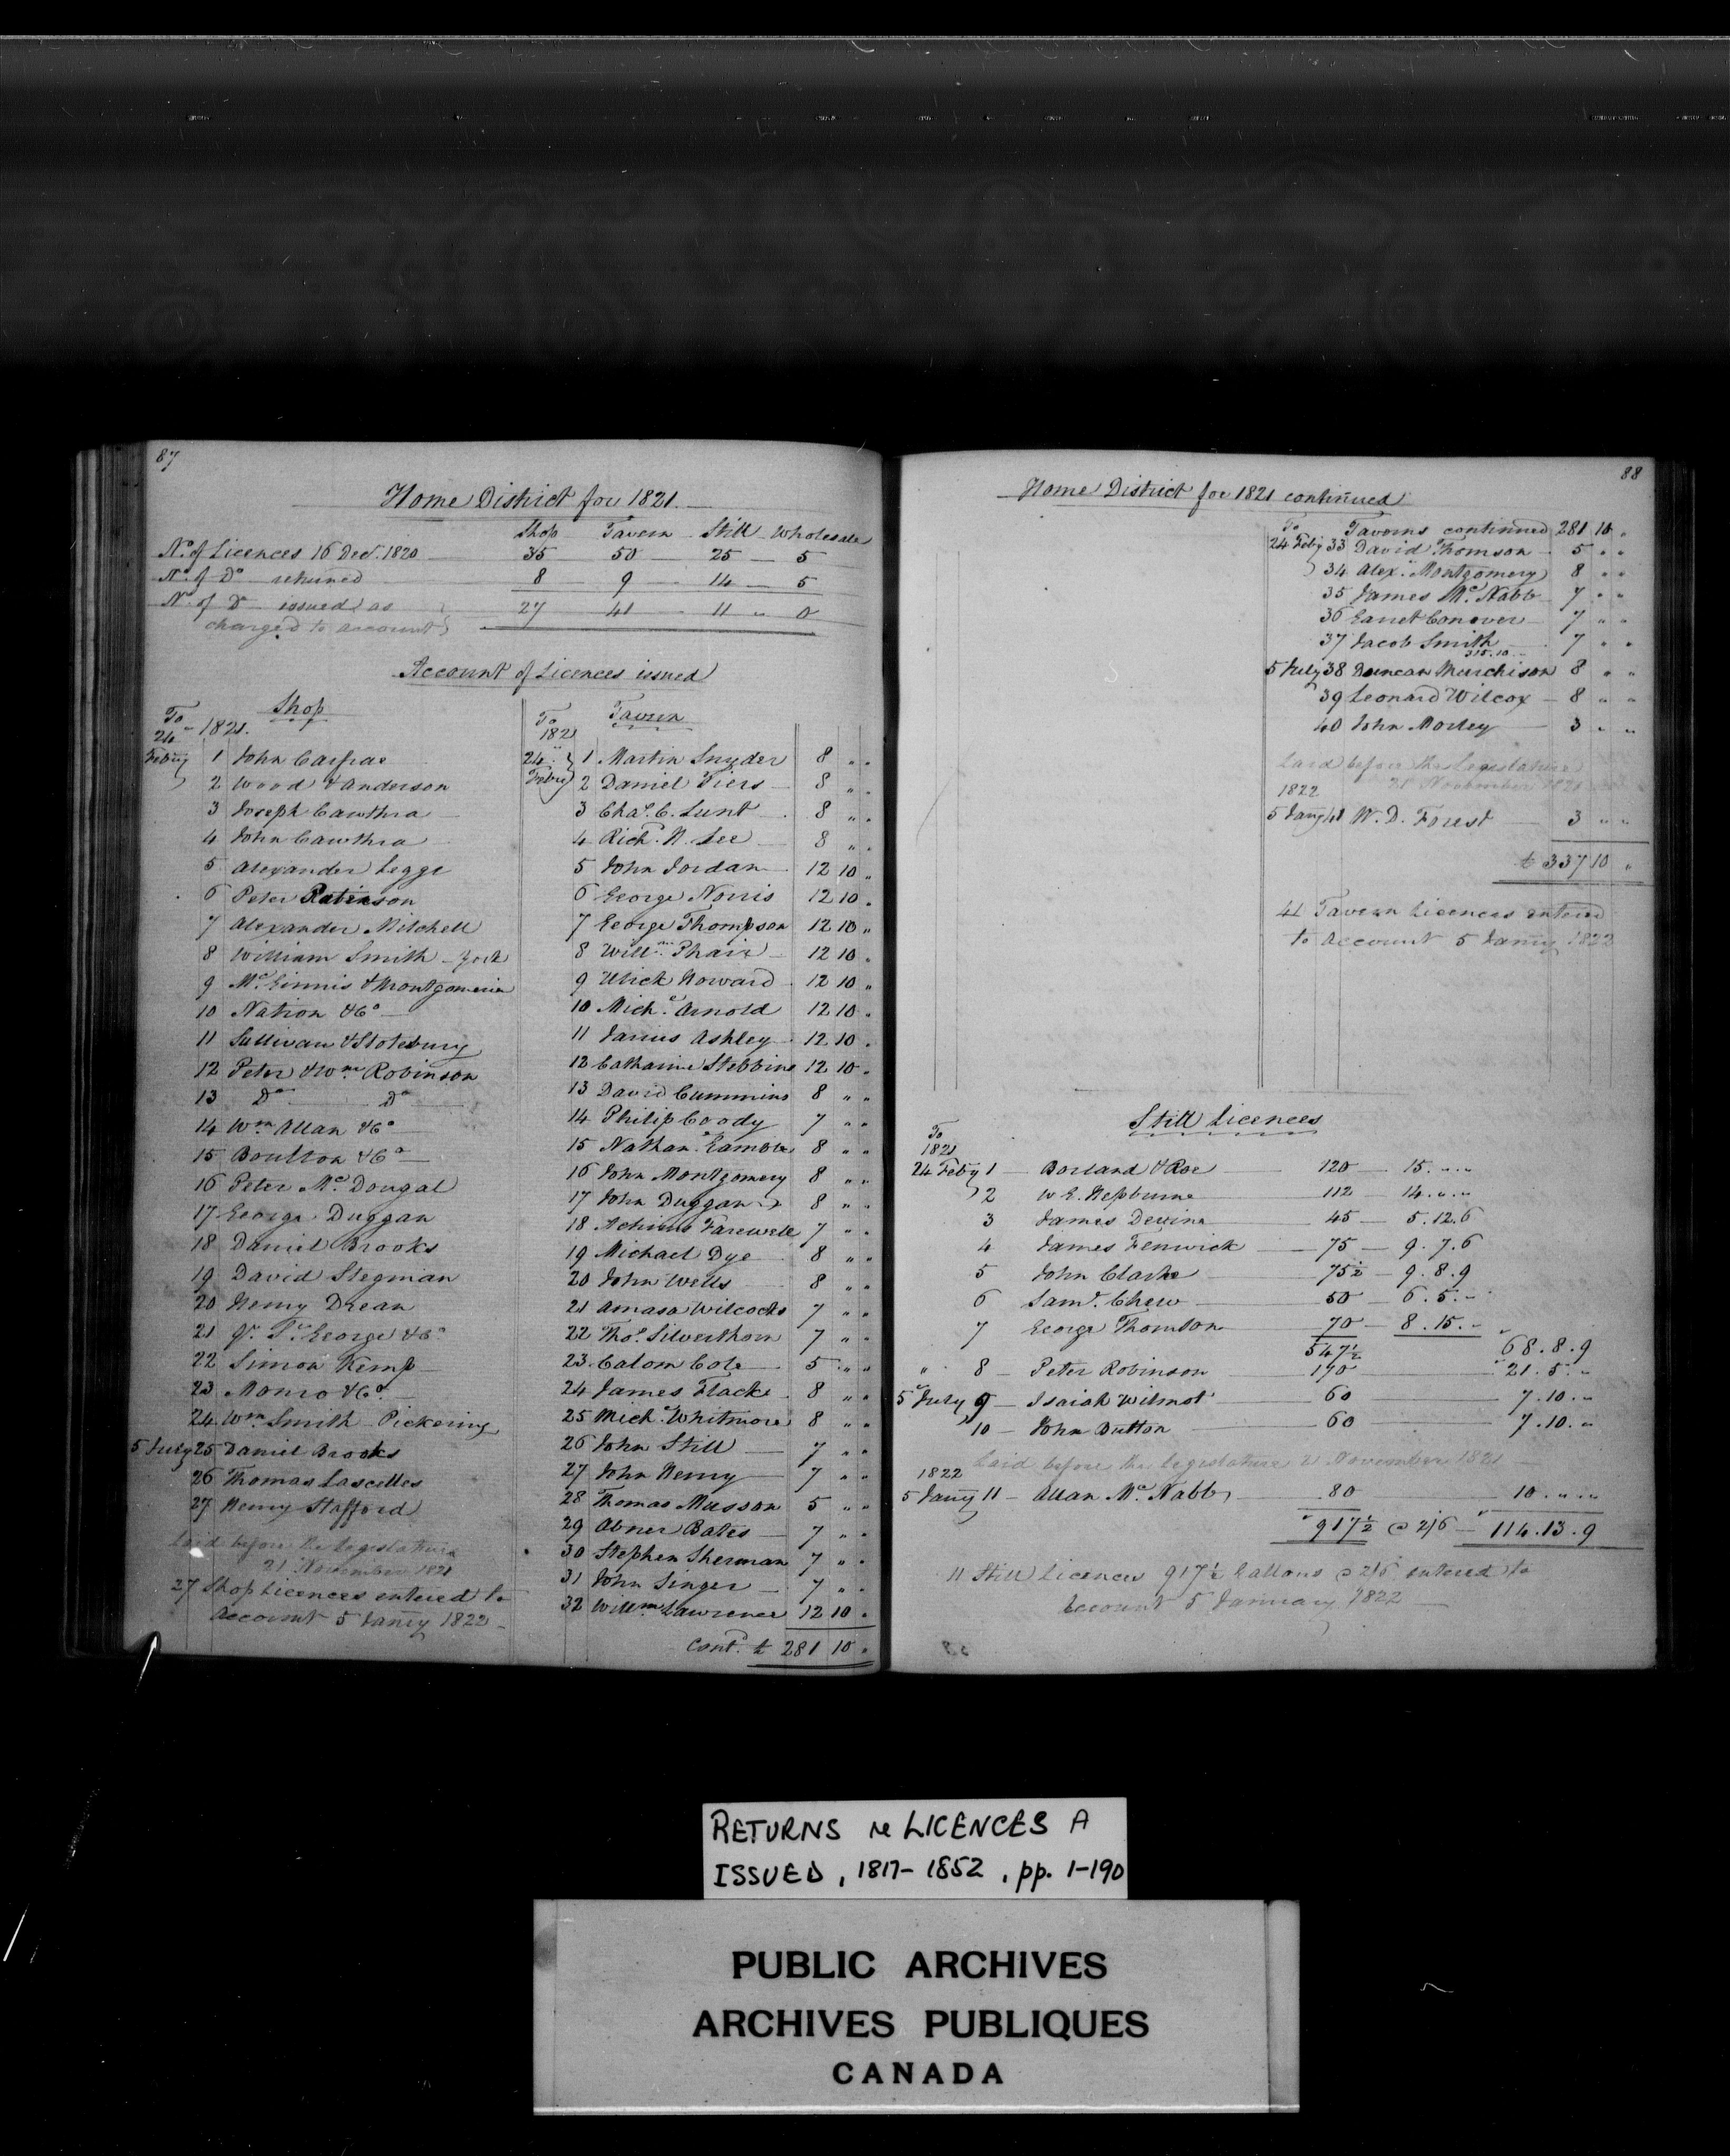 87
Home District for 1821.
Shop Tavern Still Wholesale
No. of Licences 16 Decr. 1820 35 50 25 5
No. of Do returned 8 9 14 5
No. of Do issued as charged to account } 27 41 11 " 0
Account of Licences issued
Shop
To 1821.
24 Feby 1 John Carfrae
2 Wood & Anderson
3 Joseph Cawthra
4 John Cawthra
5 Alexander Legge
6 Peter Paterson
7 Alexander Mitchell
8 William Smith - York
9 Mc Ginnis & Montgomerie
10 Nation & Co
11 Sullivan & Stotesbury
12 Peter & Wm Robinson
13 Do Do
14 Wm Allan & Co
15 Boulton & Co
16 Peter Mc Dougal
17 George Duggan
18 Daniel Brooks
19 David Stegman
20 Henry Drean
21 Qn. St. George & Co
22 Simon Kemp
23 Monro & Co
24 Wm Smith Pickering
5 July 25 Daniel Brooks
26 Thomas Lascelles
27 Henry Stafford
Laid before the Legislature
21 November 1821
27 Shop Licences entered to
account 5 Jany 1822
Tavern
To 1821
24 Feby 1 Martin Snyder 8 " "
2 Daniel Tiers 8 " "
3 Chas. C. Lunt 8 " "
4 Richd. N. Lee 8 " "
5 John Jordan 12 10 "
6 George Norris 12 10 "
7 George Thompson 12 10 "
8 Willm. Phair 12 10 "
9 Ulick Howard 12 10 "
10 Michl. Arnold 12 10 "
11 Jarius Ashley 12 10 "
12 Catharine Stebbins 12 10 "
13 David Cummins 8 " "
14 Philip Coody 7 " "
15 Nathan Gamble 8 " "
16 John Montgomery 8 " "
17 John Duggan 8 " "
18 Acheus Farewell 7 " "
19 Michael Dye 8 " "
20 John Wells 8 " "
21 Amasa Wilcocks 7 " "
22 Thos. Silverthorn 7 " "
23 Calom Cole 5 " "
24 James Flacke 8 " "
25 Michl. Whitmore 8 " "
26 John Still 7 " "
27 John Henry 7 " "
28 Thomas Musson 5 " "
29 Abner Bates 7 " "
30 Stephen Sherman 7 " "
31 John Singer 7 " "
32 Willm Lawrence 12 10 "
Contd. £ 281 10 "
88
Home District for 1821 continued
To Taverns continued 281 10 "
24 Feby 33 David Thomson 5 " "
34 Alexr. Montgomery 8 " "
35 James Mc Nabb 7 " "
36 Garret Conover 7 " "
37 Jacob Smith 7 " "
315.10
5 July 38 Duncan Murchison 8 " "
39 Leonard Wilcox 8 " "
40 John Morley 3 " "
Laid before the Legislature
21 November 1821
1822
5 Jany 41 W. D. Forest 3 " "
£ 337 10 "
41 Tavern Licences entered
to account 5 Jany 1822
Still Licences
To
1821
24 Feby 1 Borland & Roe 120 15 . " . "
2 W E. Hepburne 112 14 . " . "
3 James Devine 45 5.12.6
4 James Fenwick 75 9.7.6
5 John Clarke 75½ 9.8.9
6 Saml. Chew 50 6.5."
7 George Thomson 70 8.15."
547½ 68.8.9
" 8 Peter Robinson 170 21.5."
5 July 9 Isaiah Wilmot 60 7.10."
10 John Button 60 7.10."
Laid before the Legislature 21 November 1821
1822
5 Jany 11 Allan Mc. Nabb 80 10 . " . "
917½ @ 2/6 114.13.9
11 Still Licences 917½ Gallons @ 2/6 entered to
Account 5 January 1822
RETURNS re LICENCES A
ISSUED, 1817-1852, pp. 1-190
PUBLIC ARCHIVES
ARCHIVES PUBLIQUES
CANADA